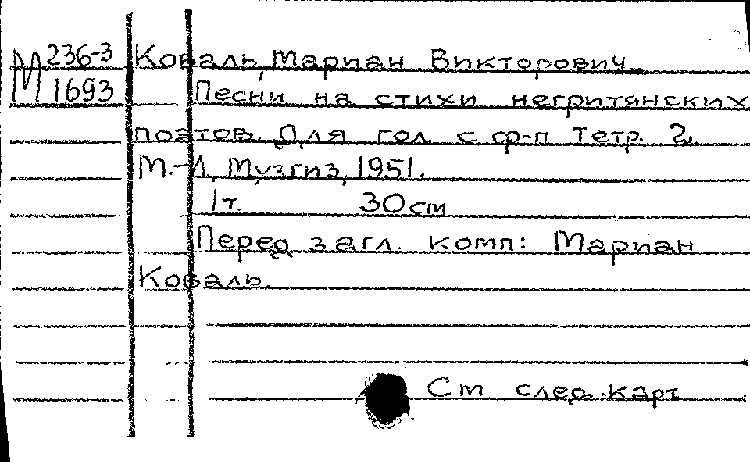 М 236-3 Коваль, Мариан Викторович
1693 Песни на стихи негритянских
поэтов. Для гол. с ф-п Тетр. 2.
М.-Л, Музгиз, 1951.
1т. 30см
Перед загл. комп: Мариан
Коваль.
См след. карт